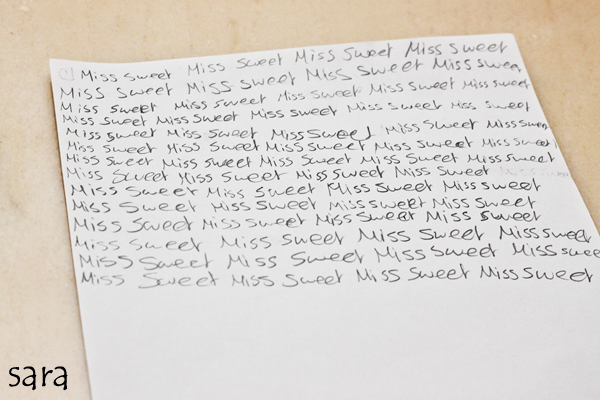 Miss Sweet Miss Sweet Miss Sweet Miss Sweet
Miss Sweet Miss Sweet Miss Sweet Miss Sweet
Miss Sweet Miss Sweet Miss Sweet Miss Sweet Miss Sweet
Miss Sweet Miss Sweet Miss Sweet Miss Sweet Miss Sweet
Miss Sweet Miss Sweet Miss Sweet Miss Sweet Miss Sweet
Miss Sweet Miss Sweet Miss Sweet Miss Sweet Miss Sweet
Miss Sweet Miss Sweet Miss Sweet Miss Sweet Miss Sweet
Miss Sweet Miss Sweet Miss Sweet Miss Sweet
Miss Sweet Miss Sweet Miss Sweet Miss Sweet
Miss Sweet Miss Sweet Miss Sweet Miss Sweet
Miss Sweet Miss Sweet Miss Sweet Miss Sweet
Miss Sweet Miss Sweet Miss Sweet Miss Sweet
Miss Sweet Miss Sweet Miss Sweet Miss Swee
Miss Sweet Miss Sweet Miss Sweet Miss Sweet
sara